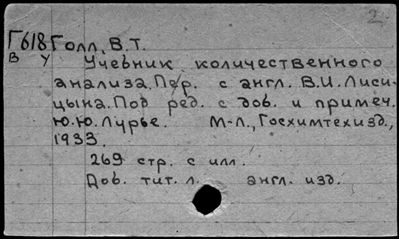 2
Г618 Голл, В.Т.
В У Учебник количественного
анализа. Пер. с англ. В.И. Лиси-
цына. Под ред. с доб. и примеч.
Ю.Ю. Лурье. М-Л., Госхимтехизд.,
1933.
269 стр. с илл.
Доб. тит. л. англ. изд.